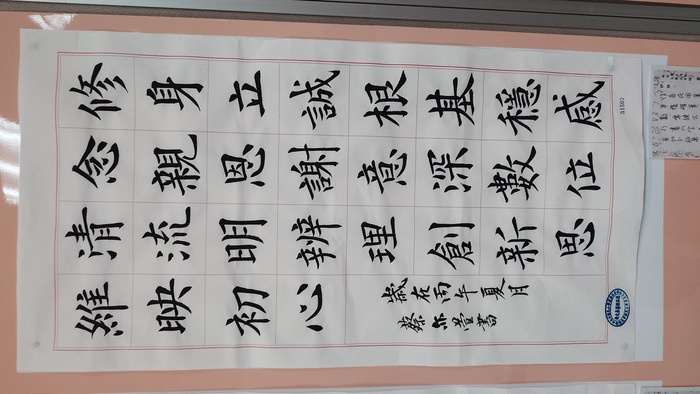 修身立誠根基穩感
念親恩謝意深數位
清流明辨理創新思
維映初心
歲在丙午夏月
蔡亦萱書
a1507